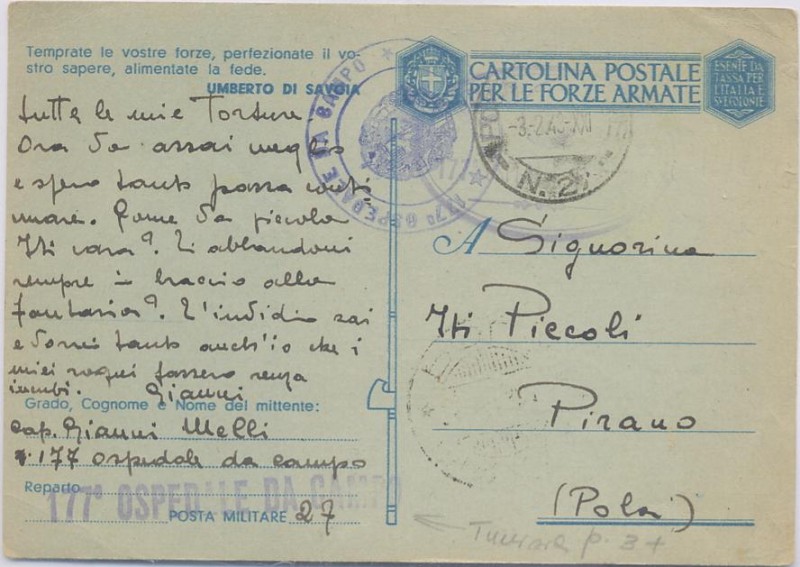 Temprate le vostre forze, perfezionate il vo-
stro sapere, alimentate la fede.
UMBERTO DI SAVOIA
CARTOLINA POSTALE
PER LE FORZE ARMATE
ESENTE DA
TASSA PER
L'ITALIA E
SUE COLONIE
177° OSPEDALE DA CAMPO
N. 27
tutte le mie Torture
Ora va assai meglio
e spero tanto possa conti
nuare. Come va piccola
Iti cara? Ti abbandoni
sempre in braccio alla
fantasia? T'invidio sai
e vorrei tanto anch'io che i
miei sogni fossero senza
incubi. Gianni
Grado, Cognome e Nome del mittente:
Cap. Gianni Melli
177 ospedale da campo
Reparto
177° OSPEDALE DA CAMPO
POSTA MILITARE 27
A Signorina
Iti Piccoli
Pirano
(Pola)
p. 3+